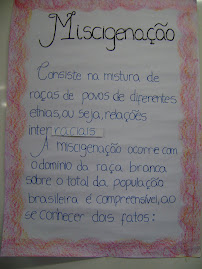 Miscigenação
Consiste na mistura de
raças de povos de diferentes
ethias, ou seja, relações
inter raciais.
A miscigenação ocorre com
o domínio da raça branca
sobre o total da população
brasileira é compreensível, ao
se conhecer dois fatos: